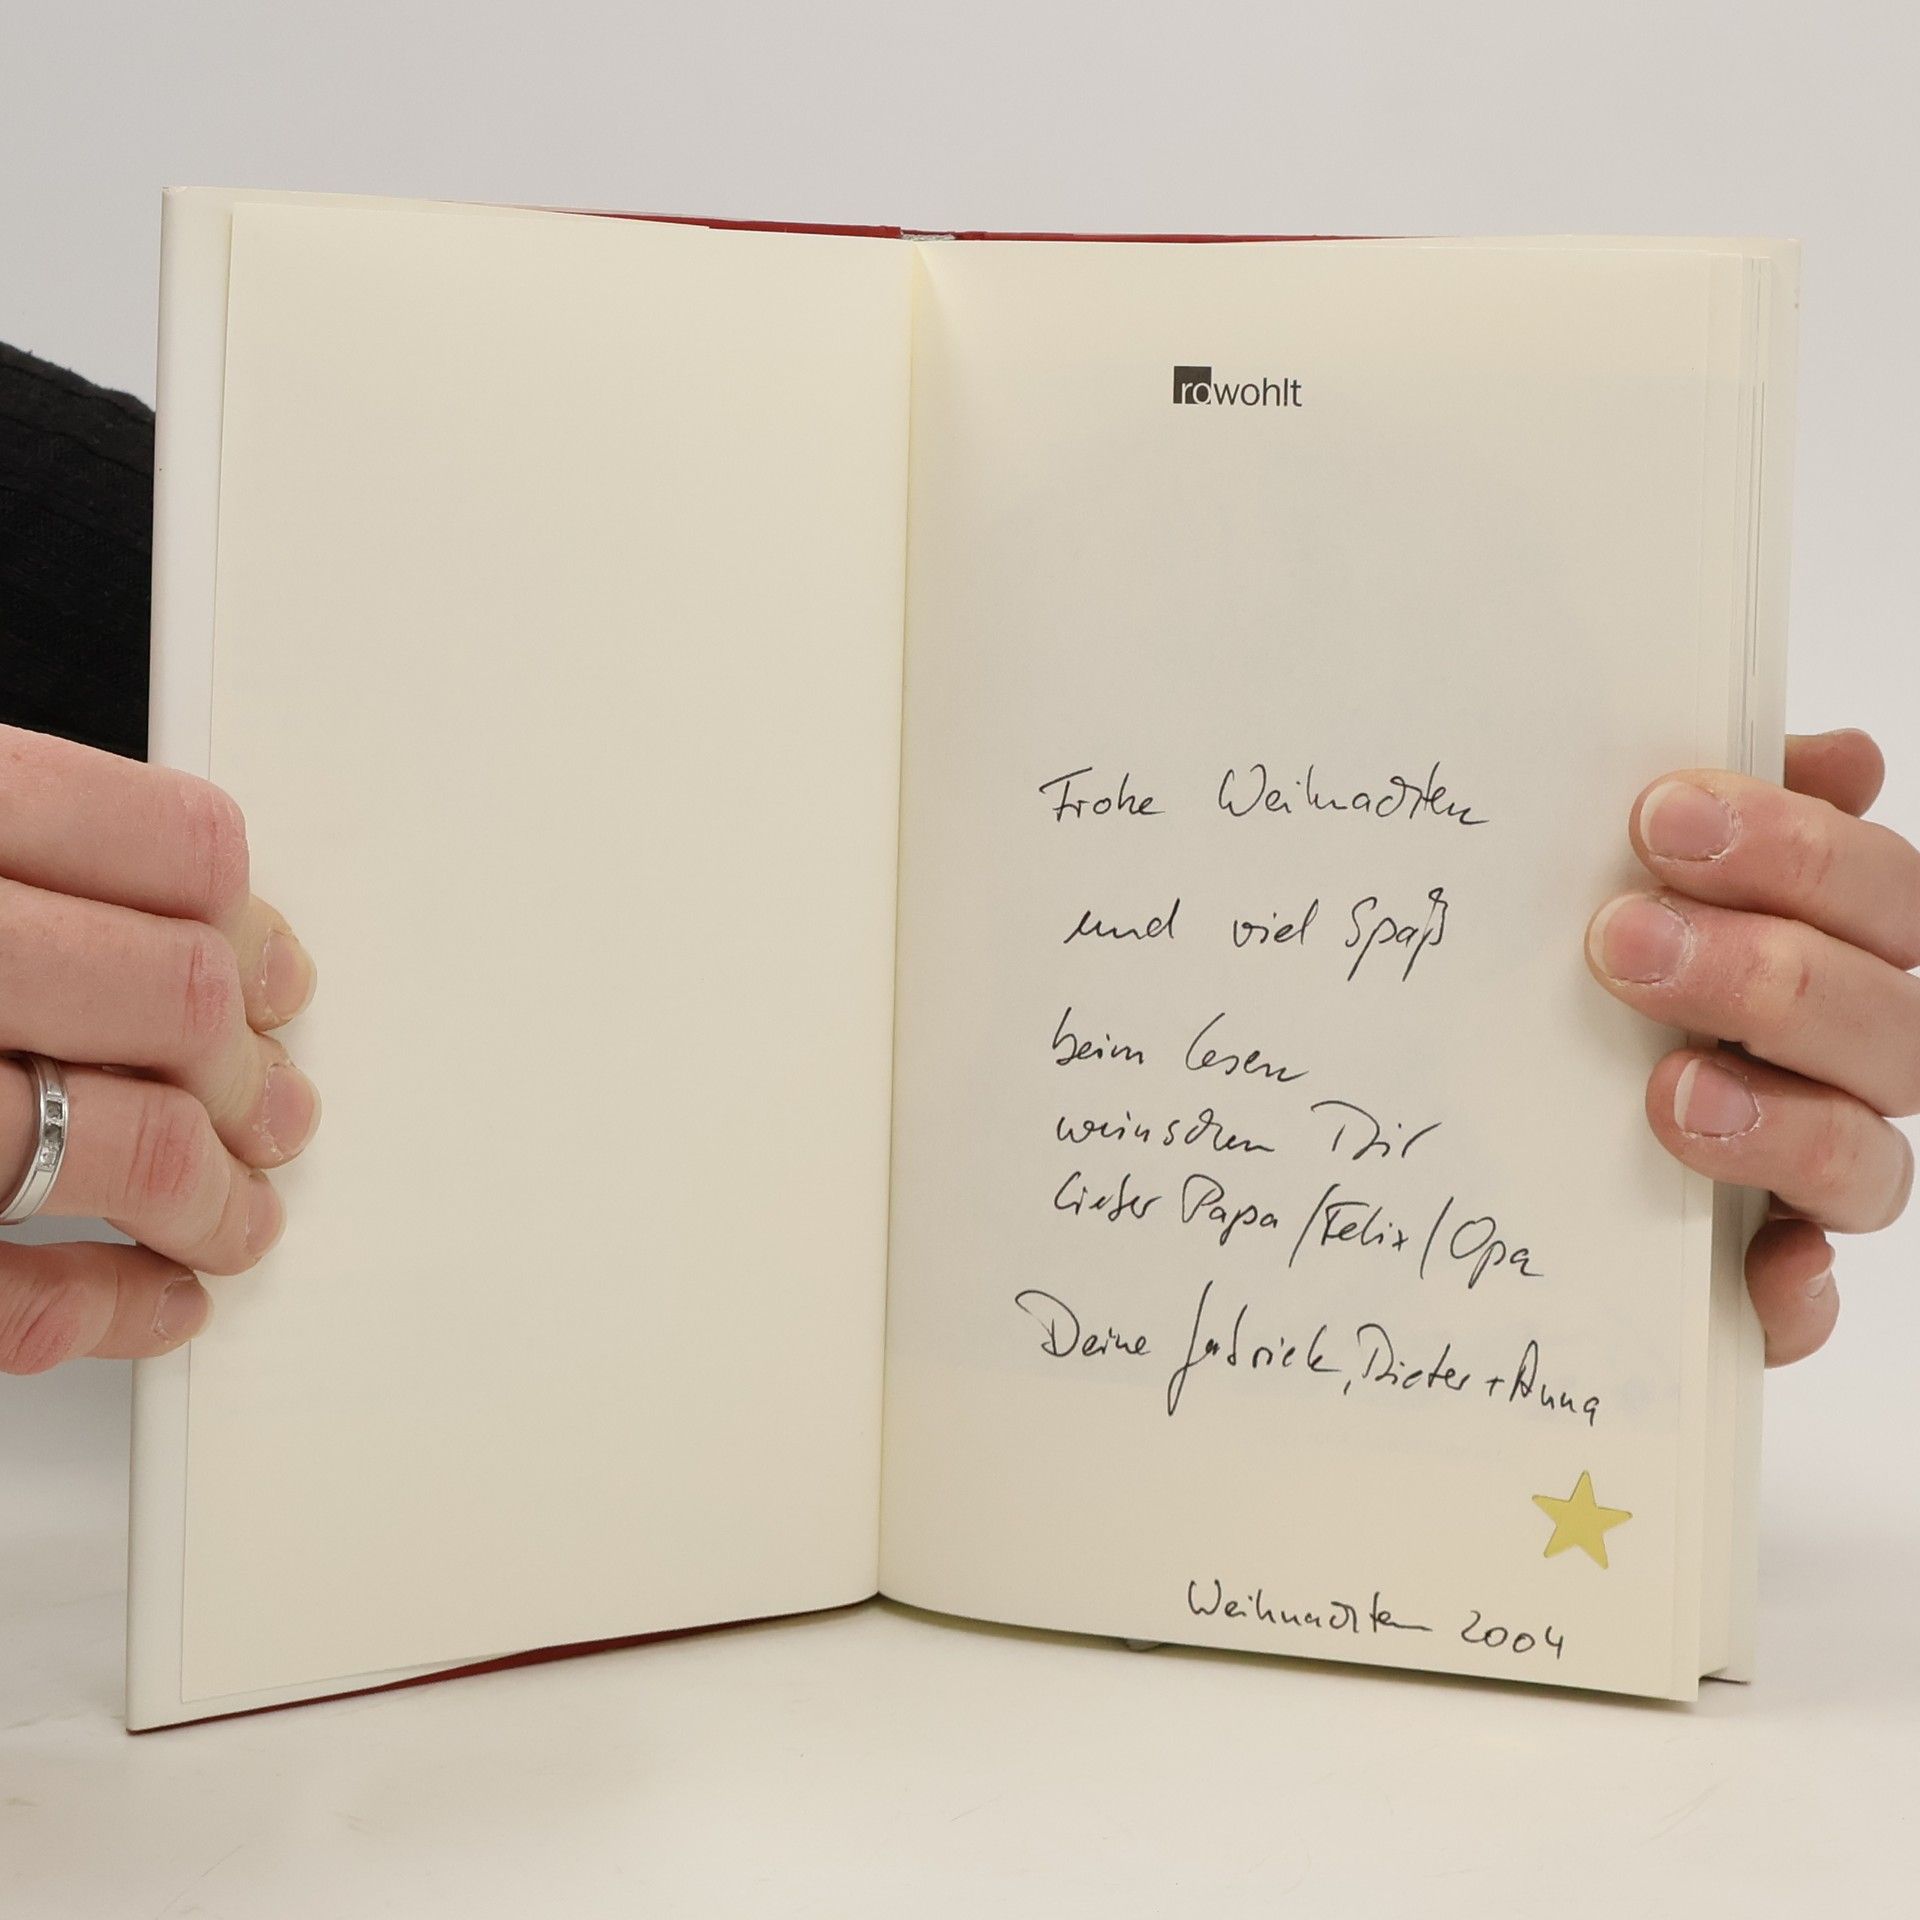 rowohlt
Frohe Weihnachten
und viel Spaß
beim lesen
wünschen Dir
lieber Papa / Felix / Opa
Deine Gabriele, Dieter + Anna
Weihnachten 2004